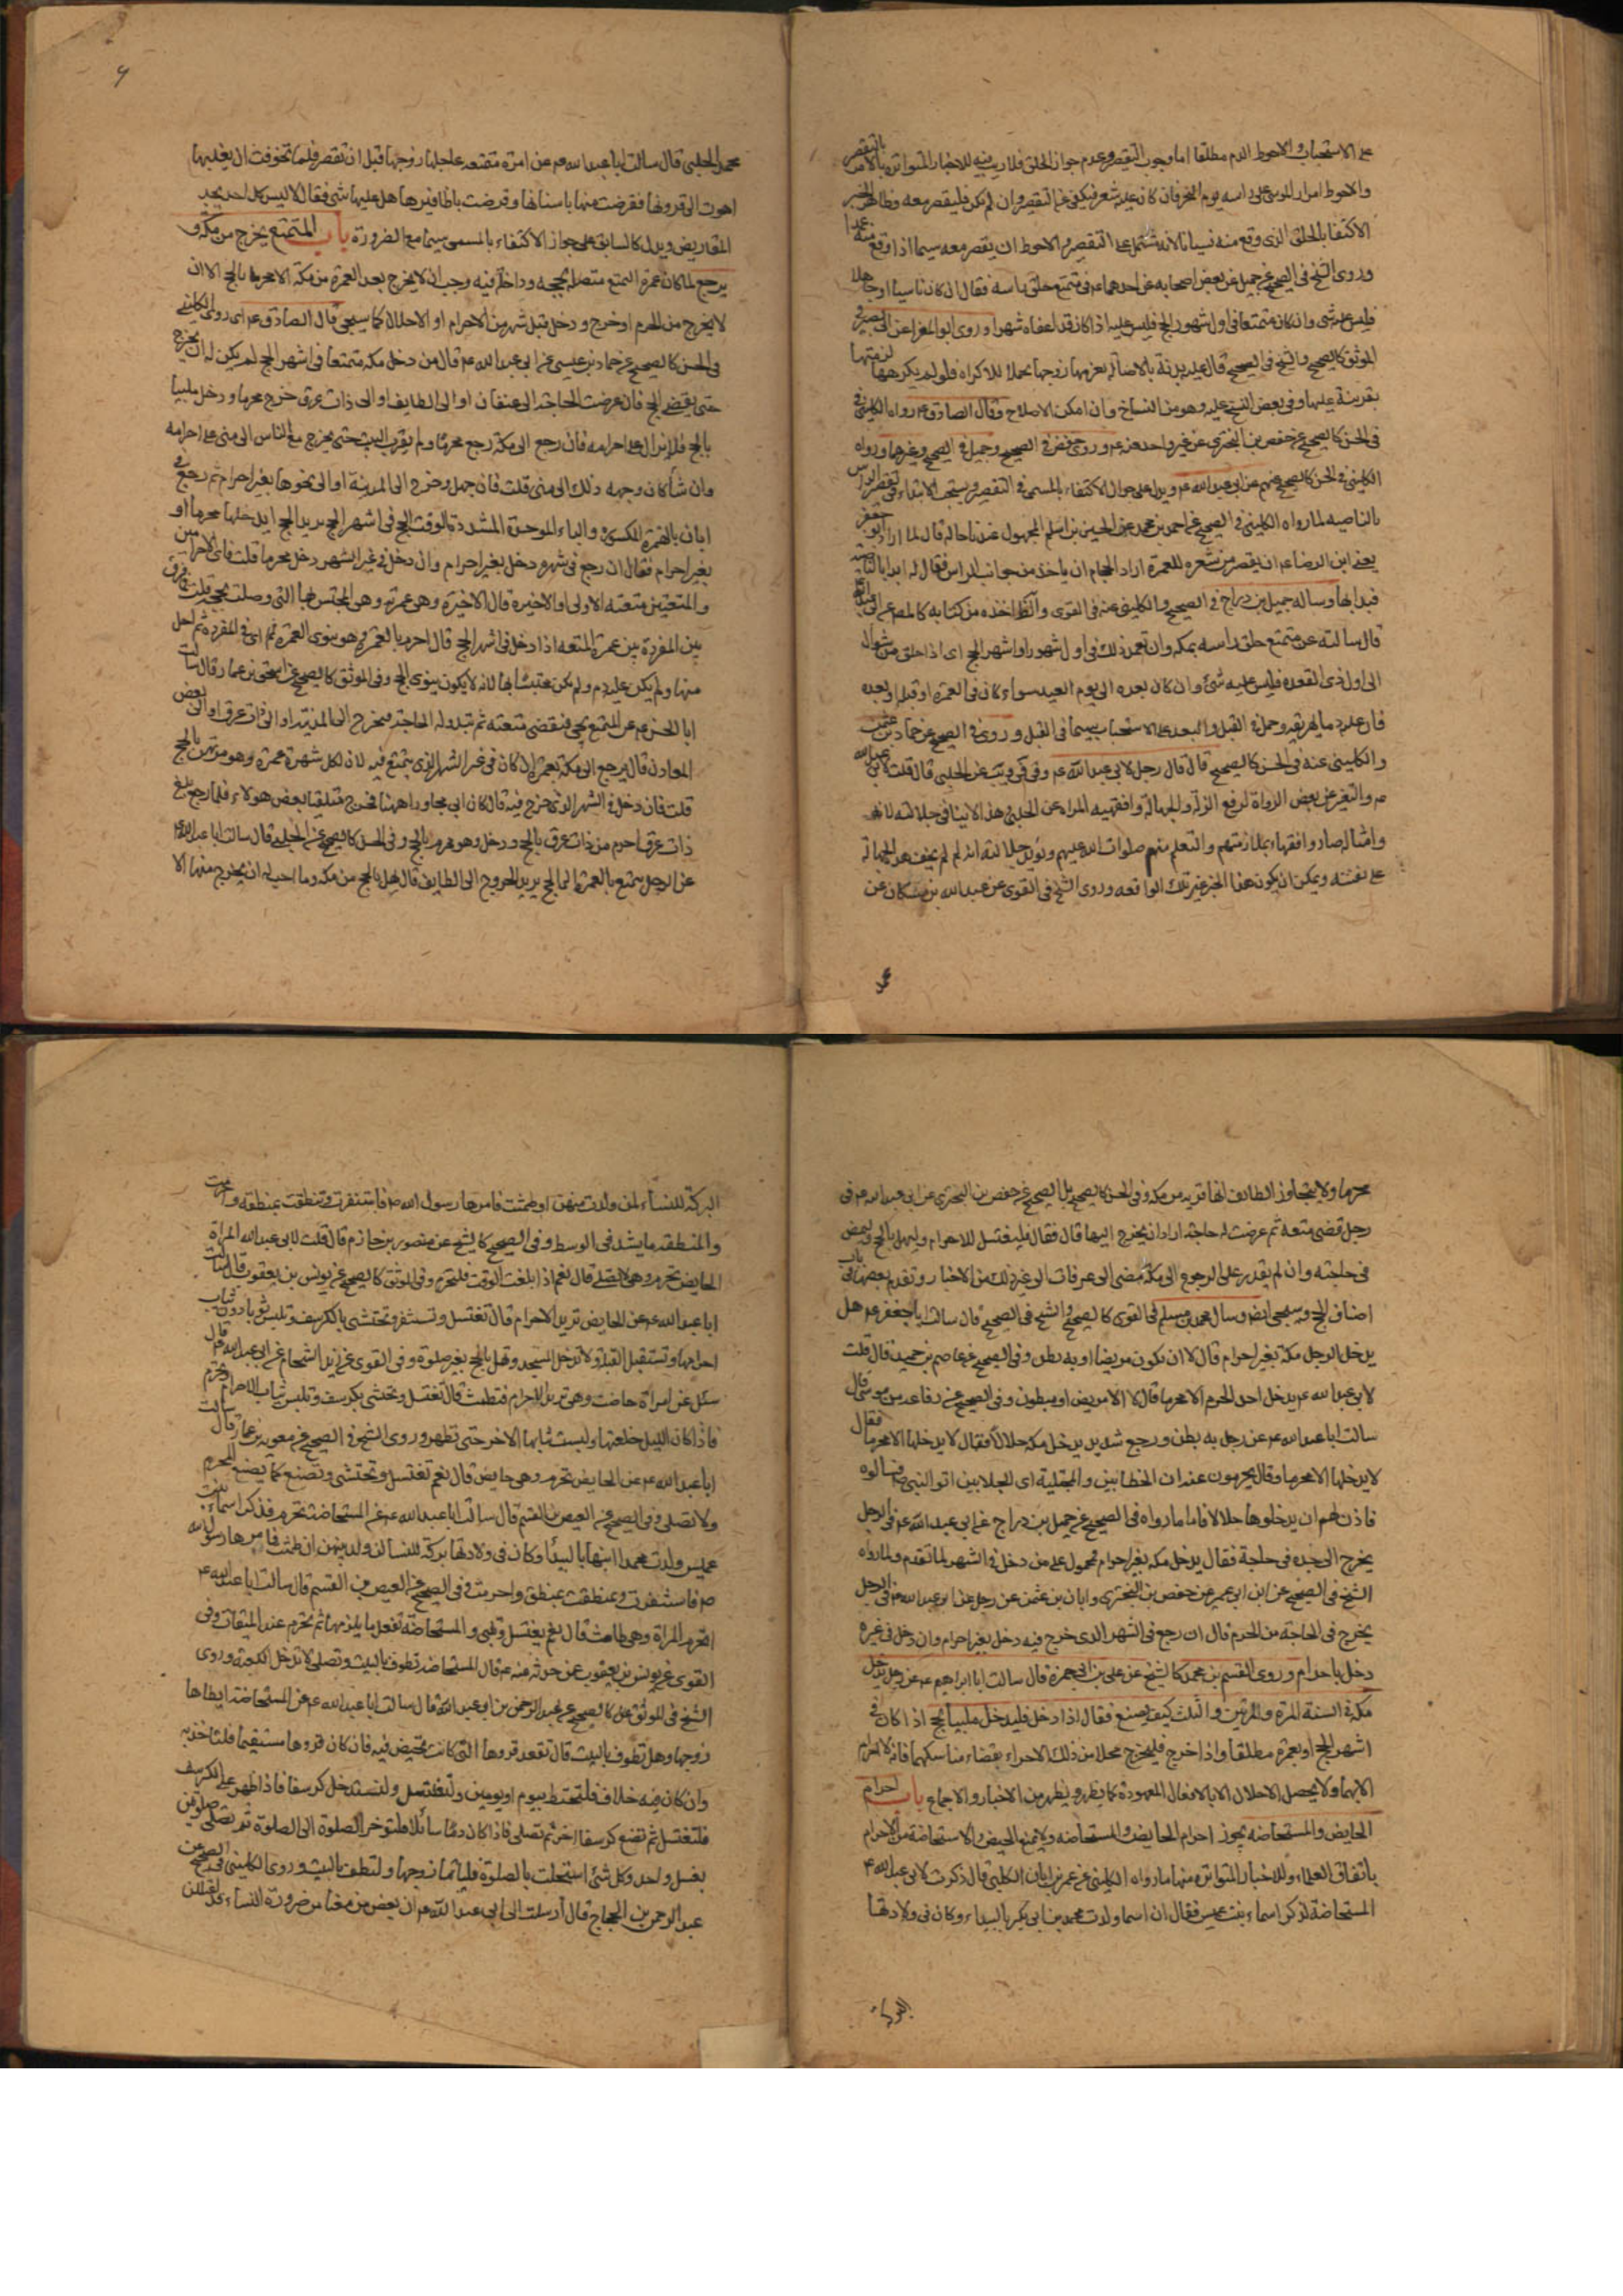 على الاستحباب والاحوط الدم مطلقا اما وجوب التقصير وعدم جواز الحلق فلا ريب فيه للاخبار المتواترة بالامر بالتقصير
والاحوط امرار الموسى على راسه يوم النحر فان كان عليه شعر فيكفى عن التقصير وان لم يكن فليقصر معه وظاهر الخبر
الاكتفا بالحلق الذى وقع منه نسيانا لانه مشتمل على التقصير والاحوط ان يقصر معه سيما اذا وقع منه عمدا
وروى الشيخ فى الصحيح عن جميل عن بعض اصحابه عن احدهما ع م فى متمتع حلق راسه فقال ان كان ناسيا او جاهلا
فليس عليه شى وان كان متمتعا فى اول شهور الحج فليس عليه اذا كان قد اعفاه شهرا وروى ابو المغرا عن ابى بصير فى
الموثق كالصحيح والشيخ فى الصحيح قال عليه بدنة بالاصالة يغرمها زوجها تحملا للاكراه فلو لم يكرهها لزمتها
بقرينة عليها وفى بعض النسخ عليه وهو من النساخ وان امكن الاصلاح وقال الصادق ع م رواه الكلينى فى
فى الحسن كالصحيح عن حفص بن البخترى عن غير واحد عنه ع م وروى حفص فى الصحيح وجميل فى الصحيح وغيرهما ورواه
الكلينى فى الحسن كالصحيح عنهم عن ابى عبد الله ع م ويدل على جواز الاكتفاء بالمسمى فى التقصير ويستحب الابتداء فى تقصير الراس
بالناصيه لما رواه الكلينى فى الصحيح عن احمد بن محمد عن الحسين بن اسلم المجهول عندنا حاله قال لما اراد ابو جعفر
يعنى ابن الرضا ع م ان يقصر من شعره للعمرة اراد الحجام ان ياخذ من جوانب الراس فقال له ابدا بالناصية
فبدا بها وساله جميل بن دراج فى الصحيح والكلينى عنه فى القوى والظ اخذه من كتابه كالمص عن ابى عبد الله
قال سالته عن متمتع حلق راسه بمكه وان تعمد ذلك فى اول شهور او اشهر الحج اى اذا حلق من شوال
الى اول ذى القعده فليس عليه شئ وان كان بعده الى يوم العيد سواء كان فى العمرة او قبله او بعده
فان عليه دما يهريقه وحمل فى القبل والبعد على الاستحباب سيما فى القبل وروى فى الصحيح عن حماد بن عثمن
والكلينى عنه فى الحسن كالصحيح قال قال رجل لابى عبد الله ع م وفى فى ويب عن الحلبى قال قلت لابى عبد الله
ع م والتغير عن بعض الرواة لرفع الزلة والجهالة وافقهيه المراه عن الحلبى وهذا لا ينافى جلالته لانه
وامثاله صاروا فقهاء بملازمتهم والتعلم منهم صلوات الله عليهم ويؤيد جلالته انه لم لم يخف هذه الجهالة
على نفسه ويمكن ان يكون هذا الخبر غير تلك الواقعه وروى الشيخ فى القوى عن عبد الله بن مسكان عن
محمد
محمد الحلبى قال سالت ابا عبد الله ع م عن امراة متمتعه عاجلها زوجها قبل ان تقصر فلما تخوفت ان يغلبها
اهوت الى قرونها فقرضت منها باسنانها وقرضت باظافيرها هل عليها شى فقال لا ليس كل احد يجد
المقاريض ويدل كالسابق على جواز الاكتفاء بالمسمى سيما مع الضرورة باب المتمتع يخرج من مكة و
يرجع لما كان عمرة التمتع متصلا بحجه وداخلة فيه وجب ان لا يخرج بعد العمرة من مكة الا محرما بالحج الا ان
لا يخرج من الحرم او خرج ودخل قبل شهر من الاحرام او الاحلال كما سيجى قال الصادق ع م اى روى الكلينى
فى الحسن كالصحيح عن حماد بن عيسى عن ابى عبد الله ع م قال من دخل مكه متمتعا فى اشهر الحج لم يكن له ان يخرج
حتى يقضى الحج فان عرضت الحاجة الى عسفان او الى الطايف او الى ذات عرق خرج محرما ودخل ملبيا
بالحج فلا يزال على احرامه فان رجع الى مكة رجع محرما ولم يقرب البيت حتى يخرج مع الناس الى منى على احرامه
وان شاء كان وجهه ذلك الى منى قلت فان جهل وخرج الى المدينة او الى نحوها بغير احرام ثم رجع فى
ابان بالهمزة المكسورة والباء الموحدة المشددة الوقت الحج فى اشهر الحج يريد الحج ايدخلها محرما او
بغير احرام فقال ان رجع فى شهره دخل بغير احرام وان دخل فى غير الشهر دخل محرما قلت فاى الاحرامين
والمتعتين متعته الاولى او الاخيرة قال الاخيرة وهى عمرته وهى المحتبس بها التى وصلت بحجته قلت فما فرق
بين المفردة وبين عمرة المتعه اذا دخل فى اشهر الحج قال احرم بالعمرة وهو ينوى العمرة ثم اى فى المفردة ثم احل
منها ولم يكن عليه دم ولم يكن محتبسا بها لانه لا يكون ينوى الحج وفى الموثق كالصحيح عن اسحق بن عمار قال سالت
ابا الحسن ع م عن المتمتع يجى فيقضى متعته ثم تبدو له الحاجة فيخرج الى المدينة او الى ذات عرق او الى بعض
المعادن قال يرجع الى مكة بعمرة ان كان فى غير الشهر الذى يتمتع فيه لان لكل شهر عمرة وهو مرتهن بالحج
قلت فان دخل فى الشهر الذى خرج فيه قال كان ابى مجاورا ههنا فخرج متلقيا بعض هولاء فلما رجع بلغ
ذات عرق احرم من ذات عرق بالحج ودخل وهو محرم بالحج وفى الحسن كالصحيح عن الحلبى قال سالت ابا عبد الله
عن الرجل يتمتع بالعمرة الى الحج يريد الخروج الى الطايف قال يهل بالحج من مكه وما احب له ان يخرج منها الا
محرما ولا يتجاوز الطائف انها قريبه من مكه وفى الحسن كالصحيح بل الصحيح عن حفص بن البخترى عن ابى عبد الله ع م فى
رجل قضى متعة ثم عرضت له حاجة اراد ان يخرج اليها قال فقال فليغتسل للاحرام وليهل بالحج وليمض
فى حاجته وان لم يقدر على الرجوع الى مكة مضى الى عرفات الى غير ذلك من الاخبار وتقدم بعضها فى باب
اصناف الحج وسيجى ايضا وسال محمد بن مسلم فى القوى كالصحيح والشيخ فى الصحيح قال سالت ابا جعفر ع م هل
يدخل الرجل مكة بغير احرام قال لا الا ان يكون مريضا او به بطن وفى الصحيح عن عاصم بن حميد قال قلت
لابى عبد الله ع م يدخل احد الحرم الا محرما قال لا الا مريض او مبطون وفى الصحيح عن رفاعه بن موسى قال
سالت ابا عبد الله ع م عن رجل به بطن ووجع شديد يدخل مكه حلالا فقال لا يدخلها الا محرما فقال
لا يدخلها الا محرما وقال يحرمون عنه ان الخطابين والمجتلبة اى الجلابين اتوا النبى ص فسالوه
فاذن لهم ان يدخلوها حلالا فاما ما رواه فى الصحيح عن جميل بن دراج عن ابى عبد الله ع م فى الرجل
يخرج الى جده فى حاجة فقال يدخل مكه بغير احرام فمحمول على من دخل فى الشهر لما تقدم ولما رواه
الشيخ فى الصحيح عن ابن ابى عمير عن حفص بن البخترى وابان بن عثمن عن رجل عن ابى عبد الله ع م فى الرجل
يخرج فى الحاجة من الحرم قال ان رجع فى الشهر الذى خرج فيه دخل بغير احرام وان دخل فى غيره
دخل باحرام وروى القسم بن محمد كالشيخ عن على بن ابى حمزة قال سالت ابا ابراهيم ع م عن رجل يدخل
مكة فى السنة المرة والمرتين والثلث كيف يصنع فقال اذا دخل فليدخل ملبيا بحج اذا كان فى
اشهر الحج او بعمرة مطلقا واذا خرج فليخرج محلا من ذلك الاحرام بقضاء مناسكهما فانه لا احرام
الا بهما ولا يحصل الاحلال الا بالافعال المعهودة كما يظهر ويظهر من الاخبار والاجماع باب احرام
الحايض والمستحاضه يجوز احرام الحايض والمستحاضه ولا يمنع الحيض والاستحاضة من الاحرام
باتفاق العلماء وللاخبار المتواترة منها ما رواه الكلينى عن عمر بن ابان الكلبى قال ذكرت لابى عبد الله ع م
المستحاضة فذكر اسماء بنت عميس فقال ان اسما ولدت محمد بن ابى بكر بالبيداء وكان فى ولادتها
البركة
البركة للنساء لمن ولدت منهن او طمثت فامرها رسول الله ص فاستثفرت وتنطقت بمنطقة واحرمت
والمنطقه ما يشد فى الوسط وفى الصحيح كالشيخ عن منصور بن حازم قال قلت لابى عبد الله المراة
الحايض تحرم وهى لا تصلى قال نعم اذا بلغت الوقت فلتحرم وفى الموثق كالصحيح عن يونس بن يعقوب قال سالت
ابا عبد الله ع م عن الحايض تريد الاحرام قال تغتسل وتستثفر وتحتشى بالكرسف وتلبس ثوبا دون ثياب
احرامها وتستقبل القبلة ولا تدخل المسجد وتهل بالحج بغير صلوة وفى القوى عن زيد الشحام عن ابى عبد الله ع م قال
سئل عن امراة حاضت وهى تريد الاحرام فتطمث قال تغتسل وتحتشى بكرسف وتلبس ثياب الاحرام وتحرم
فاذا كان الليل خلعتها ولبست ثيابها الاخر حتى تطهر وروى الشيخ فى الصحيح عن معويه بن عمار قال سالت
ابا عبد الله ع م عن الحايض تحرم وهى حايض قال نعم تغتسل وتحتشى وتصنع كما يصنع المحرم
ولا تصلى وفى الصحيح عن العيص بن القسم قال سالت ابا عبد الله ع م عن المستحاضة تحرم فذكر اسماء بنت
عميس ولدت محمدا ابنها بالبيدا وكان فى ولادتها بركة للنسا لمن ولد منهن ان طمثت فامرها رسول الله
ص فاستثفرت وتمنطقت بمنطق واحرمت وفى الصحيح عن العيص بن القسم قال سالت ابا عبد الله ع م
اتحرم المراة وهى طامث قال نعم تغتسل وتلبى والمستحاضة تفعل ما يلزمها ثم تحرم عند الميقات وفى
القوى عن يونس بن يعقوب عن من حدثه عنه ع م قال المستحاضه تطوف بالبيت وتصلى ولا تدخل الكعبة وروى
الشيخ فى الموثق كالصحيح عن عبد الرحمن بن ابى عبد الله قال سالت ابا عبد الله ع م عن المستحاضة ايطاها
زوجها وهل تطوف بالبيت قال تقعد قروها التى كانت تحيض فيه فان كان قروها مستقيما فلتاخذ به
وان كان فيه خلاف فلتحتط بيوم او يومين ولتغتسل ولتستدخل كرسفا فاذا ظهر على الكرسف
فلتغتسل ثم تضع كرسفا اخر ثم تصلى فاذا كان دما سائلا فلتوخر الصلوة الى الصلوة ثم تصلى صلوتين
بغسل واحد وكل شئ استحلت بالصلوة فلياتها زوجها ولتطف بالبيت وروى الكلينى فى الصحيح عن
عبد الرحمن بن الحجاج قال ارسلت الى ابى عبد الله ع م ان بعض من معنا من ضرورة النساء